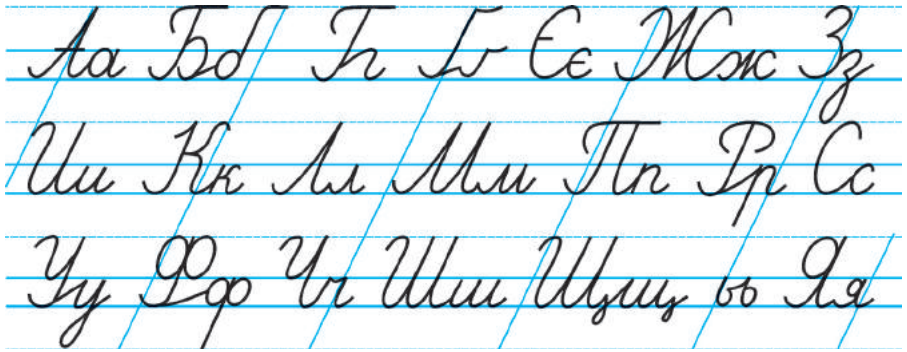 Аа Бб Гг Ґґ Єє Жж Зз
Ии Кк Лл Мм Пп Рр Сс
Уу Фф Чч Шш Щщ ьо Яя